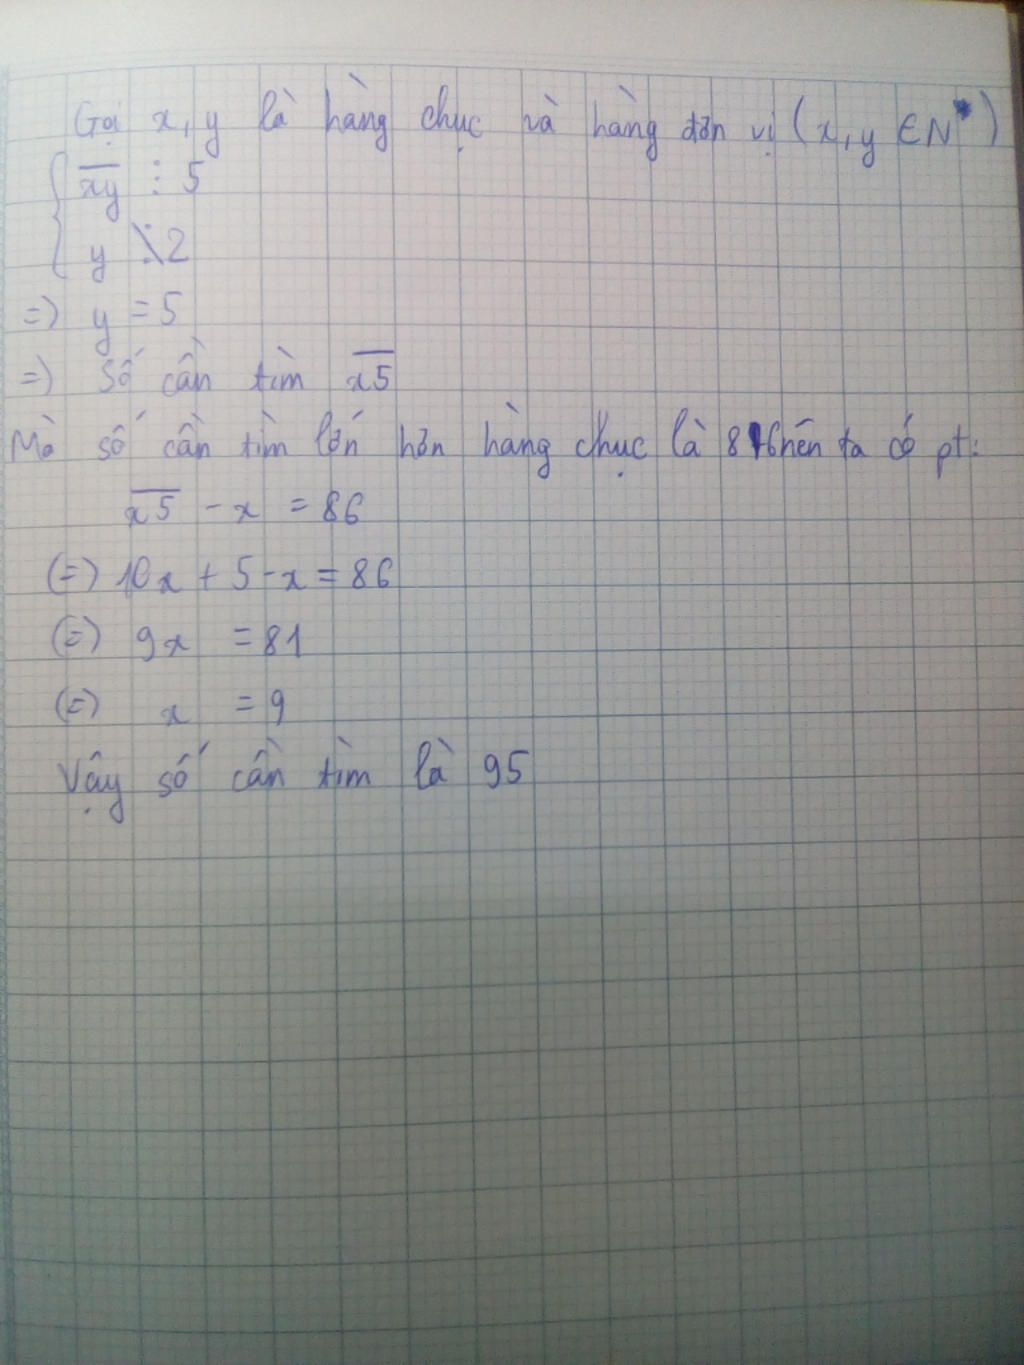 Gọi x, y là hàng chục và hàng đơn vị (x, y ∈ N*)
{ x̅y̅ ⋮ 5
y ⋮̸ 2
=) y = 5
=) Số cần tìm x̅5̅
Mà số cần tìm lớn hơn hàng chục là 86 nên ta có pt:
x̅5̅ - x = 86
(=) 10x + 5 - x = 86
(=) 9x = 81
(=) x = 9
Vậy số cần tìm là 95